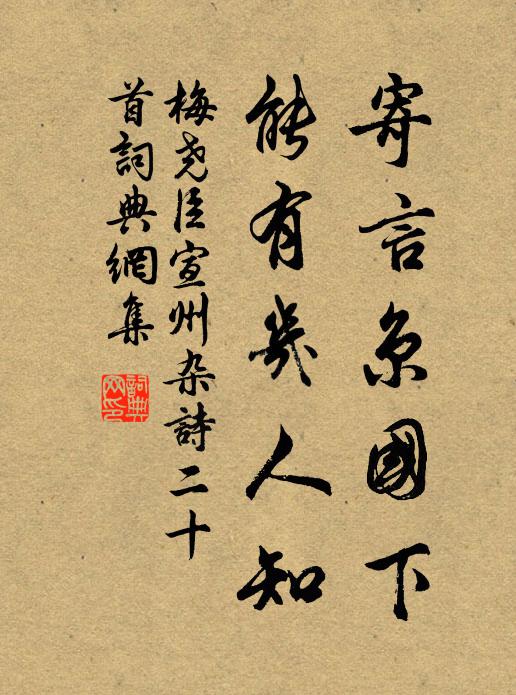 寄言京國下
能有幾人知
梅尧臣宣州杂詩二十
首詞典網集
詞典
网印